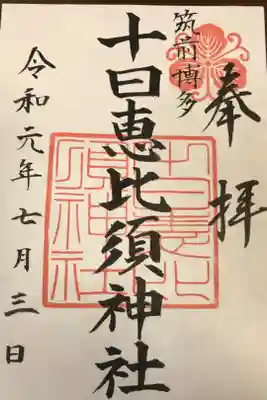 奉拝
筑前博多
十日恵比須神社
令和元年七月三日
十日恵比
須神社